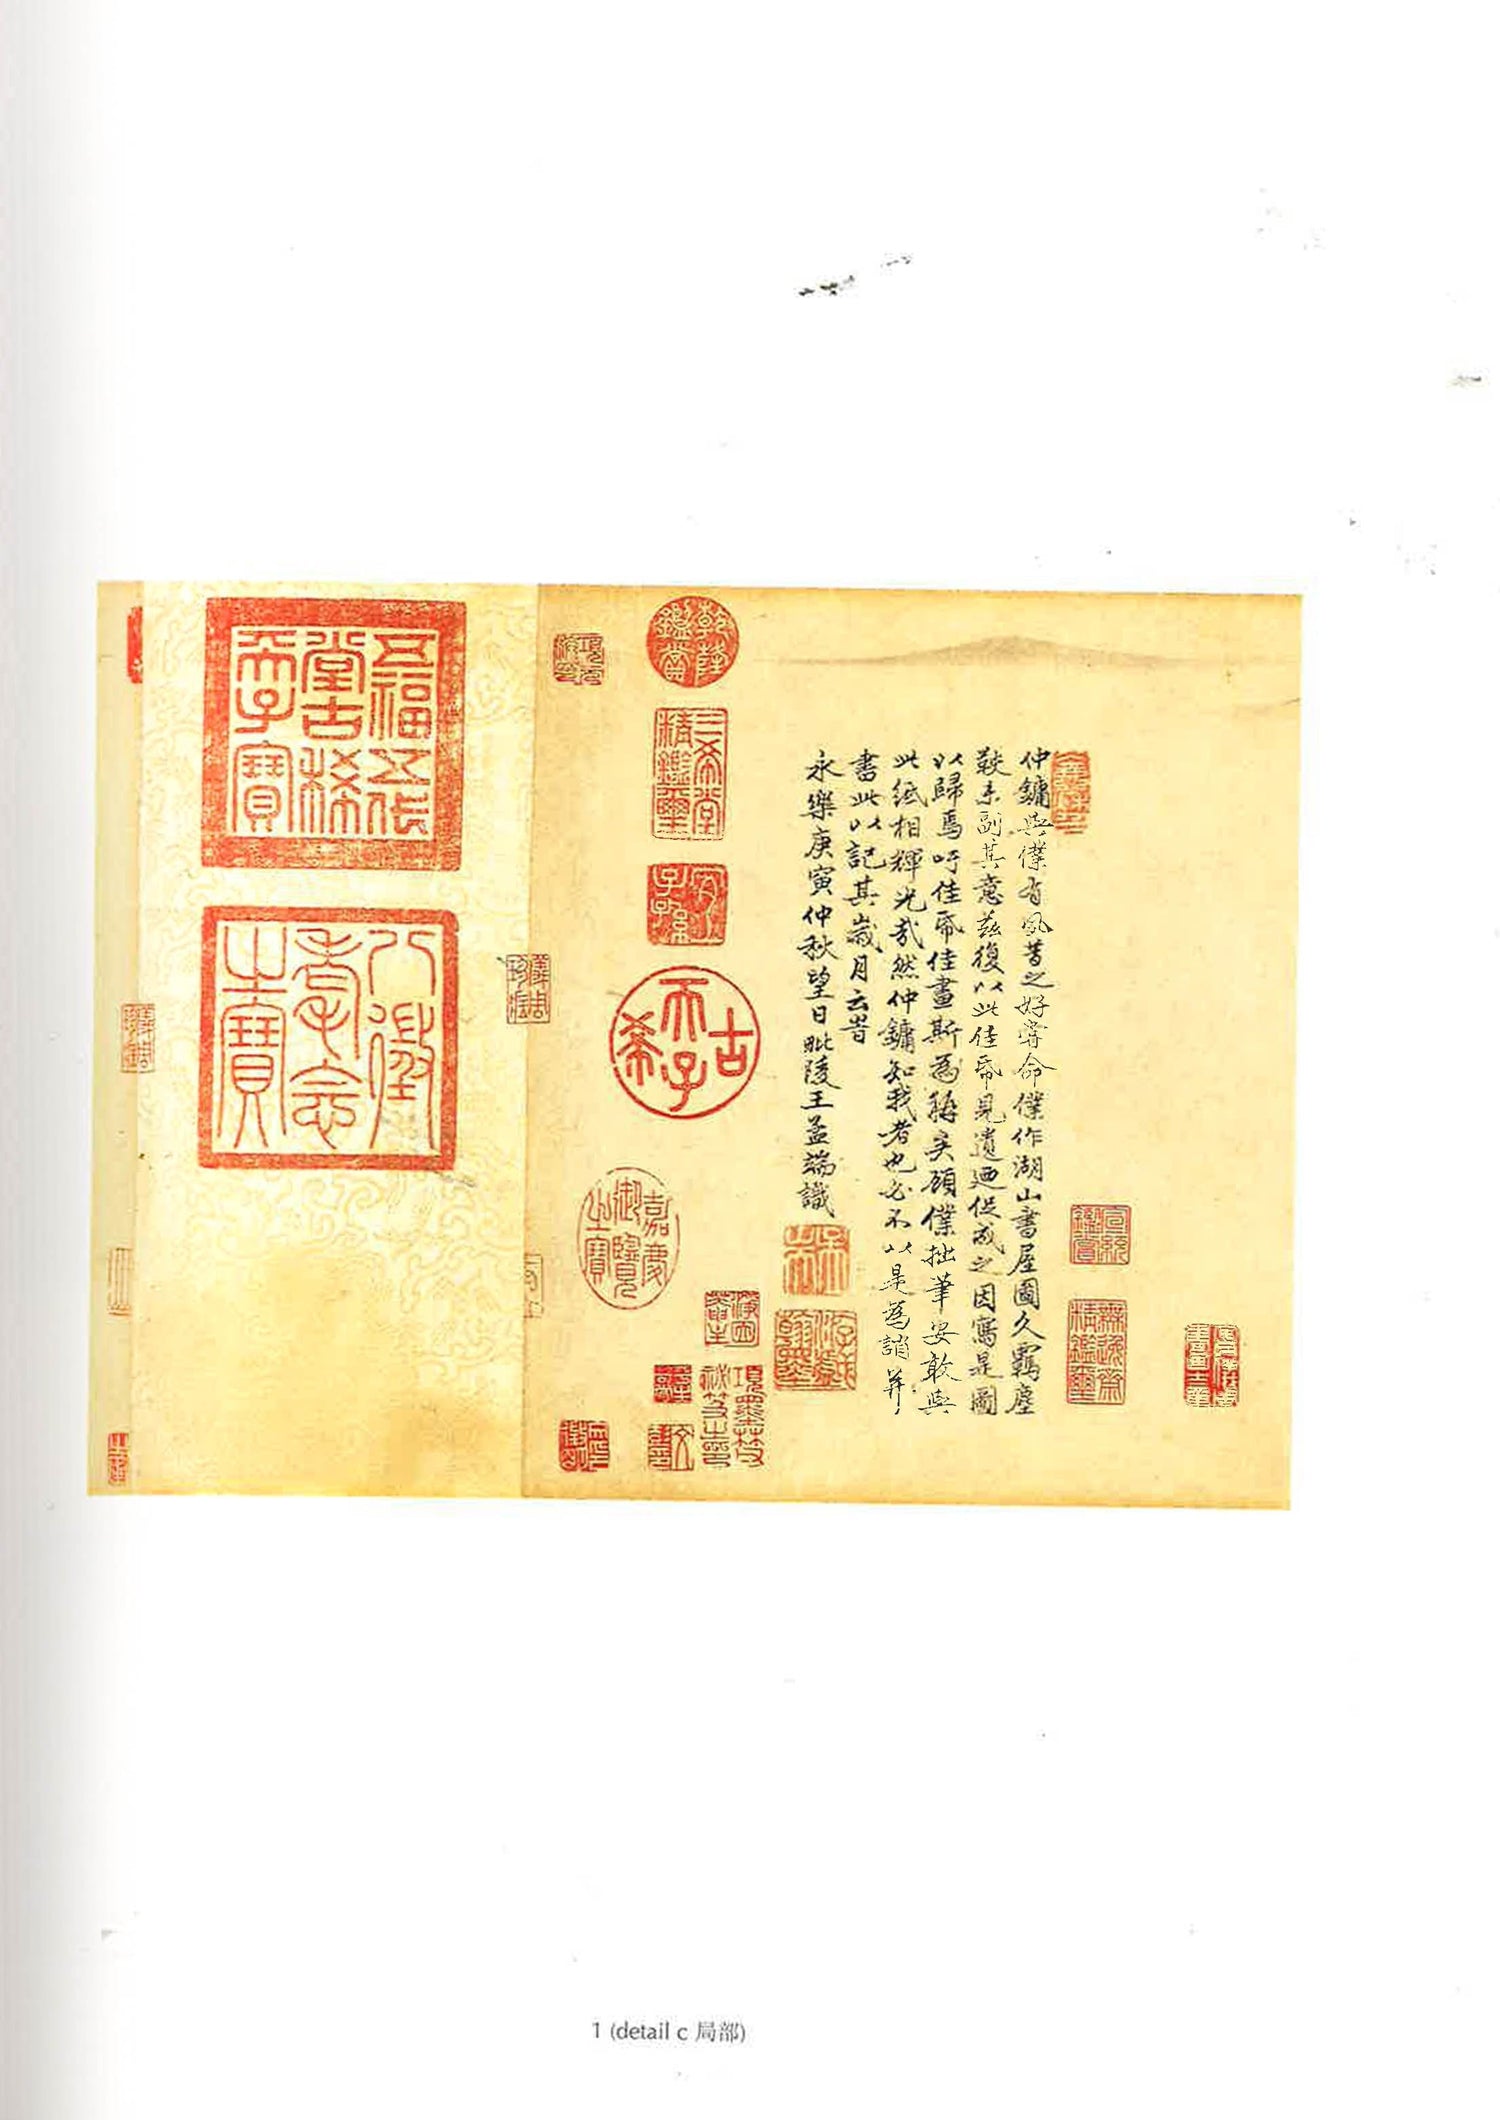 仲鏞與僕有夙昔之好嘗命僕作湖山書屋圖久羈塵
鞅未副其意茲復以此佳帋見遺廼促成之因寫是圖
以歸焉吁佳帋佳畫斯為稱矣顧僕拙筆安敢與
此紙相輝光哉然仲鏞知我者也必不以是為誚并
書此以記其歲月云旹
永樂庚寅仲秋望日毗陵王孟端識
乾隆鑑賞
三希堂精鑑璽
宜子孫
古希天子
嘉慶御覽之寶
宣統鑑賞
無逸齋精鑑璽
游戲翰墨
項墨林父祕笈之印
五福五代堂古稀天子寶
八徵耄念之寶
1 (detail c 局部)